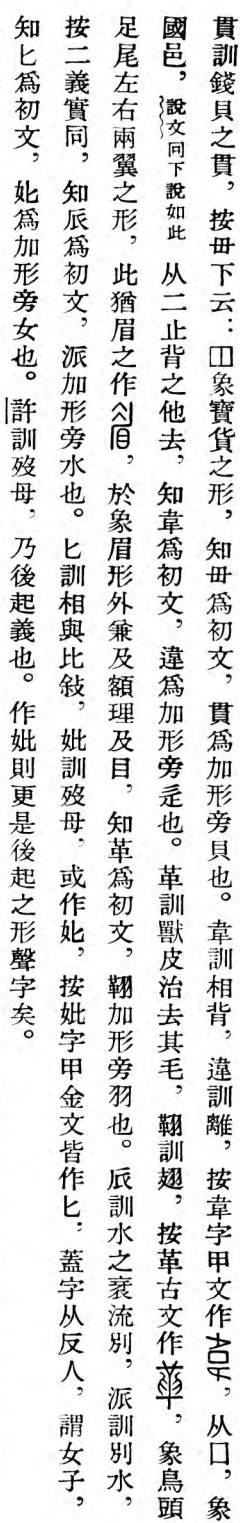 貫訓錢貝之貫，按毌下云：囗象寶貨之形，知毌爲初文，貫爲加形旁貝也。韋訓相背，違訓離，按韋字甲文作，从囗，象
國邑，說文囘下說如此从二止背之他去，知韋爲初文，違爲加形旁辵也。革訓獸皮治去其毛，䩯訓翅，按革古文作，象鳥頭
足尾左右兩翼之形，此猶眉之作，於象眉形外兼及額理及目，知革爲初文，䩯加形旁羽也。𠂢訓水之衺流別，派訓別水，
按二義實同，知𠂢爲初文，派加形旁水也。匕訓相與比敍，妣訓歿母，或作𡚧，按妣字甲金文皆作匕，蓋字从反人，謂女子，
知匕爲初文，𡚧爲加形旁女也。許訓歿母，乃後起義也。作妣則更是後起之形聲字矣。